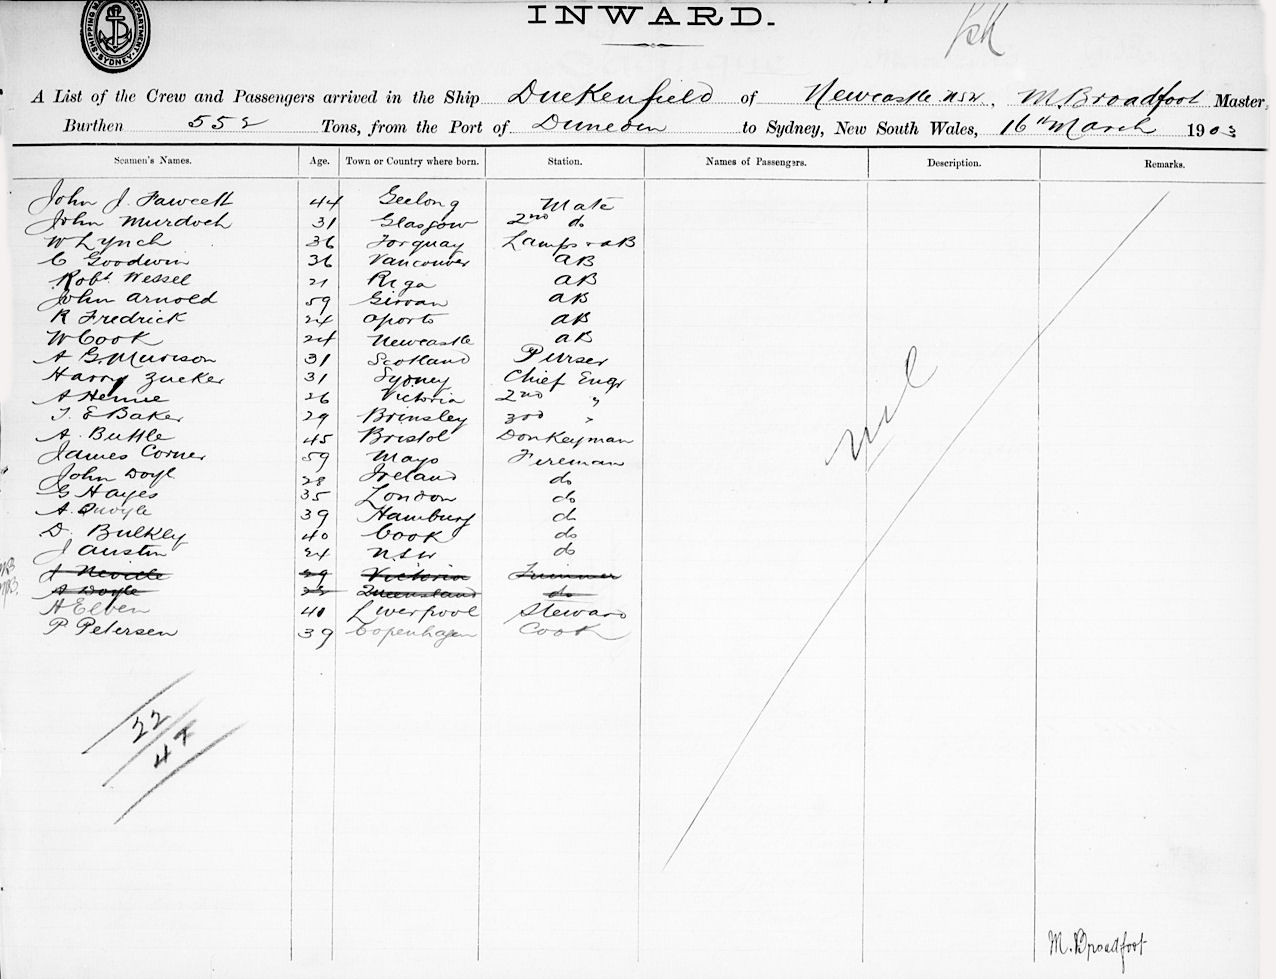 SHIPPING MASTER'S DEPARTMENT. SYDNEY.
INWARD.
A List of the Crew and Passengers arrived in the Ship Duckenfield of Newcastle NSW, M. Broadfoot Master,
Burthen 552 Tons, from the Port of Dunedin to Sydney, New South Wales, 16th March 1903
Seamen's Names. Age. Town or Country where born. Station. Names of Passengers. Description. Remarks.
John J. Fawcett 44 Geelong Mate
John Murdoch 31 Glasgow 2nd do
W Lynch 36 Torquay Lamps & AB
C Goodwin 36 Vancouver AB
Robt Wessel 21 Riga AB
John Arnold 59 Girvan AB
R Fredrick 24 Oporto AB
W Cook 24 Newcastle AB
A G. Murison 31 Scotland Purser
Harry Zucker 31 Sydney Chief Engr
A Hennie 26 Victoria 2nd "
T. E Baker 29 Brinsley 3rd "
A. Buttle 45 Bristol Donkeyman
James Corner 59 Mayo Fireman
John Doyle 28 Ireland do
G Hayes 35 London do
A. Quoyle 39 Hamburg do
D. Bulkley 40 Cook do
J Austin 24 NSW do
J Neville 29 Victoria Trimmer
A Doyle Queensland do
H Elben 40 Liverpool Steward
P Petersen 39 Copenhagen Cook
nil
22
47
M. Broadfoot